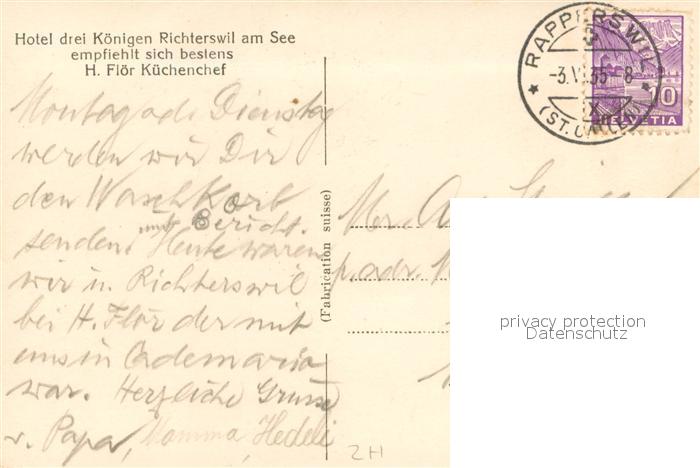 Hotel drei Königen Richterswil am See
empfiehlt sich bestens
H. Flör Küchenchef
Montag od. Dienstag
werden wir Dir
den Waschkorb
mit Bericht.
senden. Heute waren
wir in Richterswil
bei H. Flör der mit
uns in Cademario
war. Herzliche Grüsse
v. Papa, Mamma, Hedeli
(Fabrication suisse)
RAPPERSWIL
-3.V 35-8
(ST. GALLEN)
10
HELVETIA
p. adr.
privacy protection
Datenschutz
2H